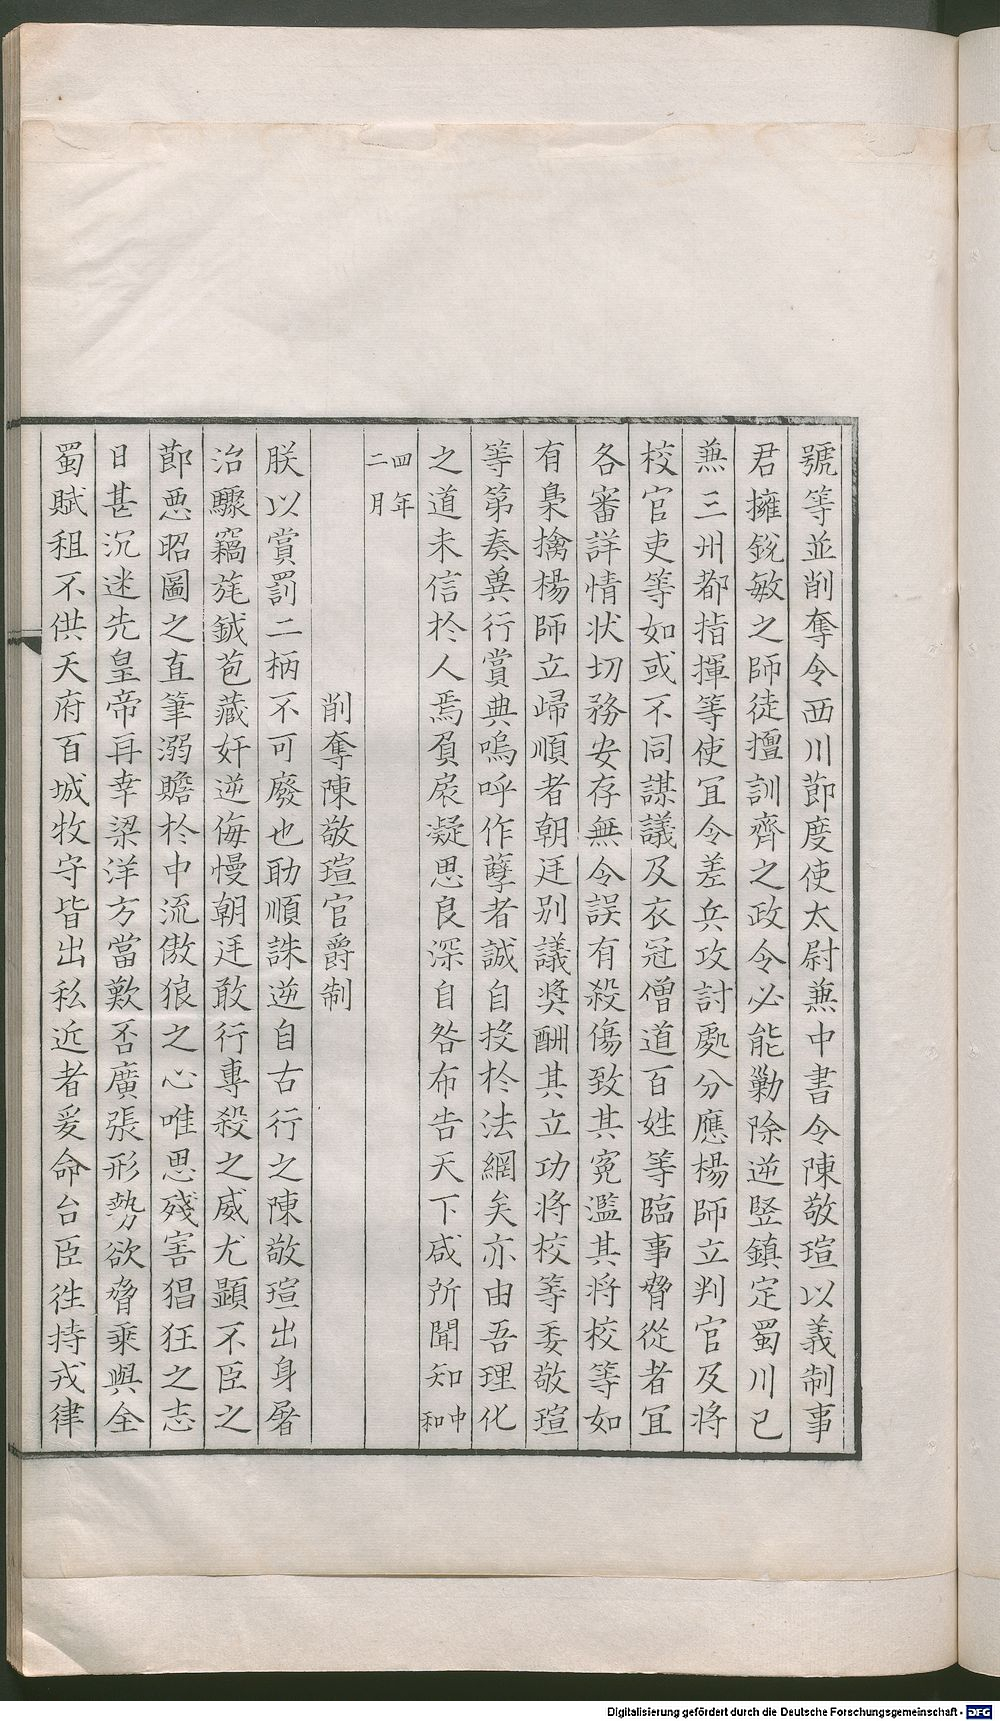 號等並削奪令西川節度使太尉蕪中書令陳敬瑄以義制事
君擁銳敏之師徒擅訓齊之政令必能勦除逆竪鎮定蜀川已
蕪三州都指揮等使冝令差兵攻討處分應楊師立判官及將
校官吏等如或不同謀議及衣冠僧道百姓等臨事脅從者冝
各審詳情状切務安存無令誤有殺傷致其寃濫其將校等如
有梟擒楊師立歸順者朝廷別議奬酬其立功將校等委敬瑄
等第奏兾行賞典嗚呼作孽者誠自投於法網矣亦由吾理化
之道未信於人焉負扆凝思良深自咎布告天下咸所聞知中和
四年二月
削奪陳敬瑄官爵制
朕以賞罰二柄不可廢也助順誅逆自古行之陳敬瑄出身屠
治驟竊旄鉞苞藏奸逆侮慢朝廷敢行專殺之威尤顯不臣之
節惡昭圖之直筆溺贍於中流傲狼之心唯思殘害猖狂之志
日甚沉迷先皇帝再幸梁洋方當歎否廣張形勢欲脅乘輿全
蜀賦租不供天府百城牧守皆出私近者爰命台臣徃持戎律
Digitalisierung gefördert durch die Deutsche Forschungsgemeinschaft - DFG